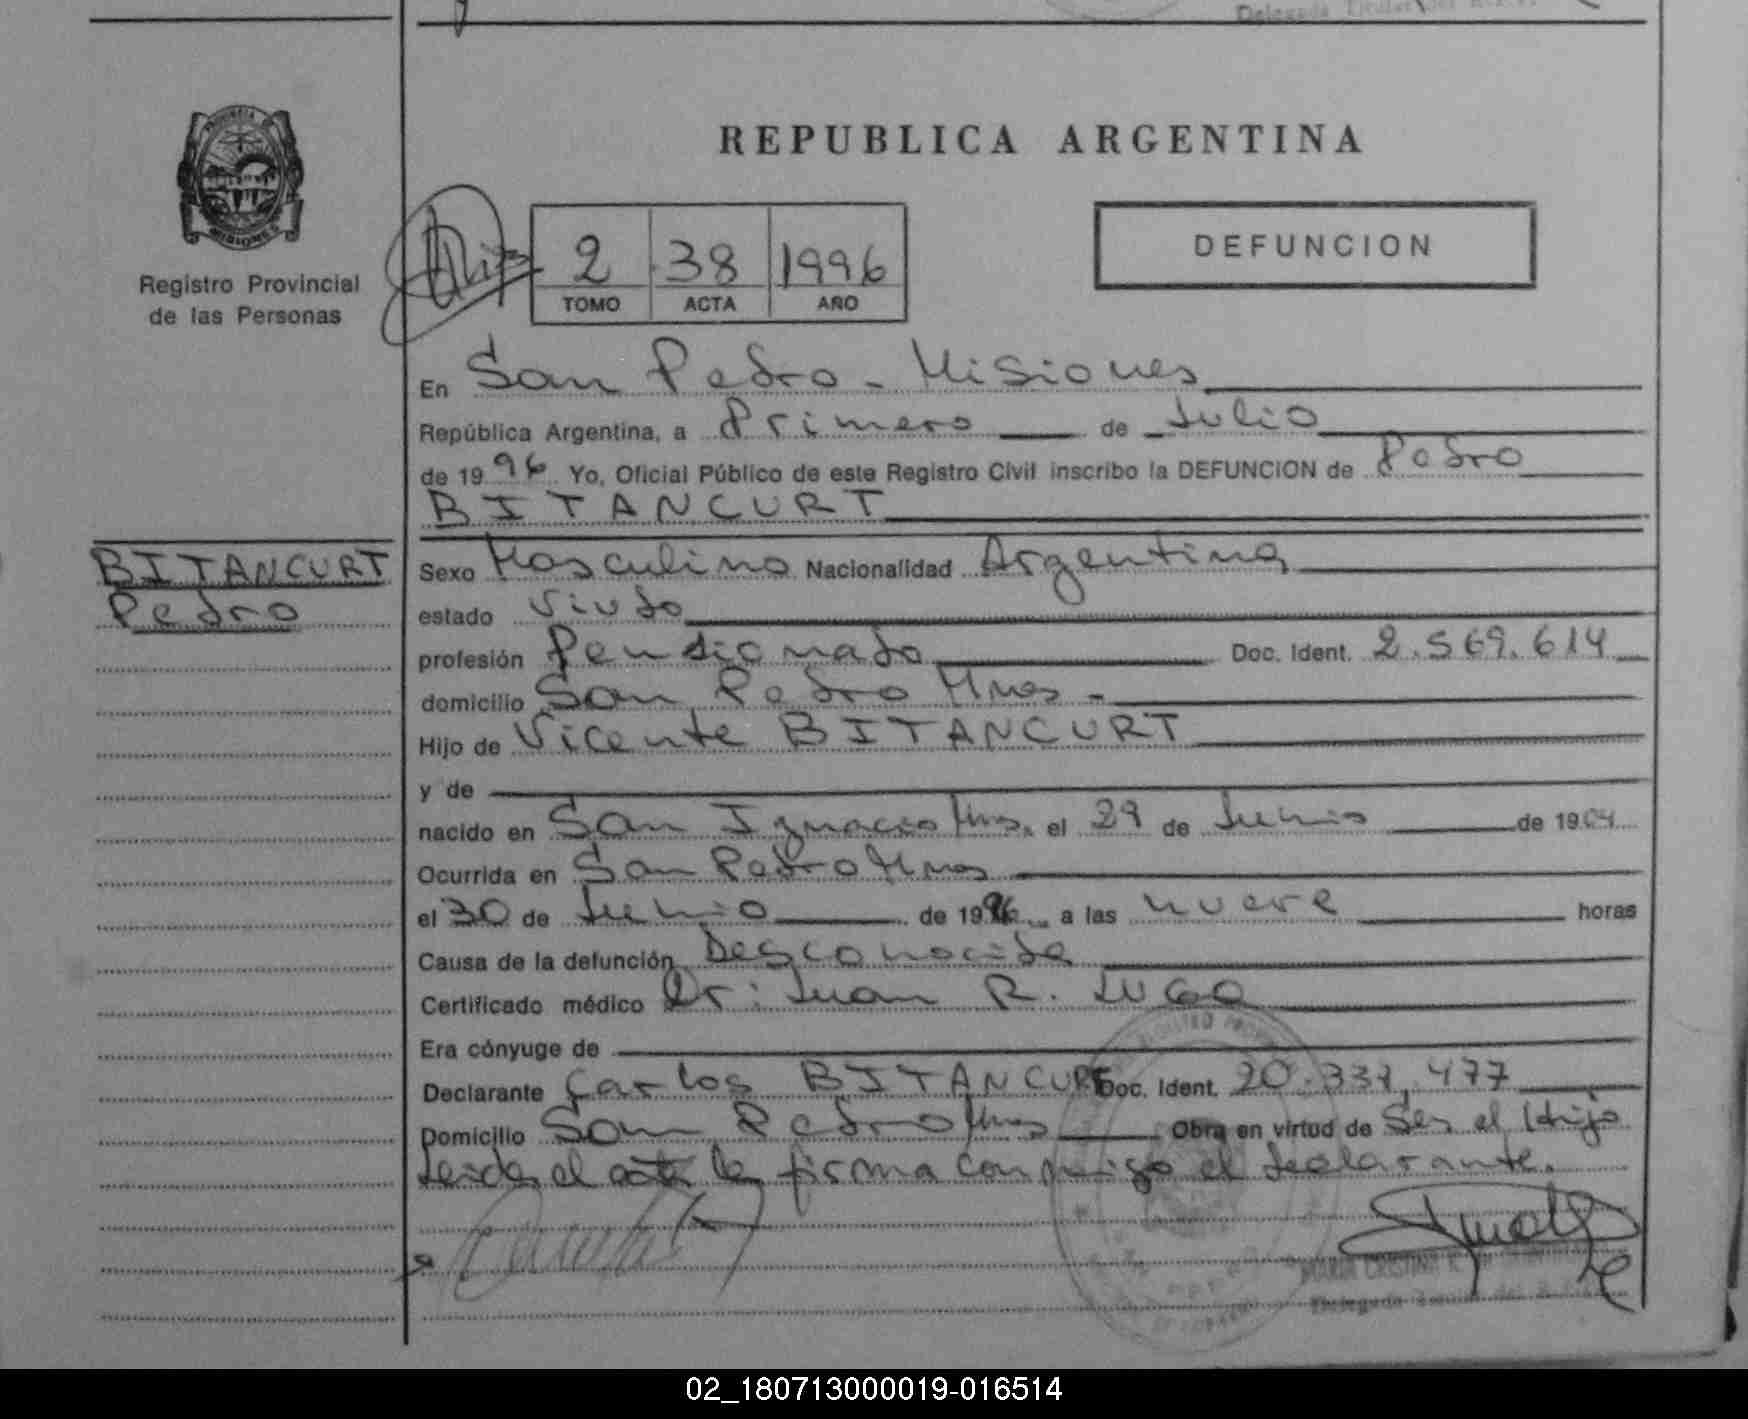 Delegada Titular del R.P.P.
PROVINCIA
MISIONES
REPUBLICA ARGENTINA
Registro Provincial
de las Personas
2 38 1996
TOMO ACTA AÑO
DEFUNCION
En San Pedro - Misiones
República Argentina, a Primero de Julio
de 1996 Yo, Oficial Público de este Registro Civil inscribo la DEFUNCION de Pedro
BITANCURT
BITANCURT
Pedro
Sexo Masculino Nacionalidad Argentina
estado Viudo
profesión Pensionado Doc. Ident. 2.569.614
domicilio San Pedro Mnes -
Hijo de Vicente BITANCURT
y de
nacido en San Ignacio Mns. el 29 de Junio de 1904
Ocurrida en San Pedro Mnes
el 30 de Junio de 1996 a las nueve horas
Causa de la defunción Desconocida
Certificado médico Dr: Juan R. LUGO
Era cónyuge de
Declarante Carlos BITANCURT Doc. Ident. 20.337.477
Domicilio San Pedro Mnes Obra en virtud de Ser el Hijo
Leida el acta la firma conmigo el declarante.
MARIA CRISTINA
Delegada Titular del R.
02_180713000019-016514